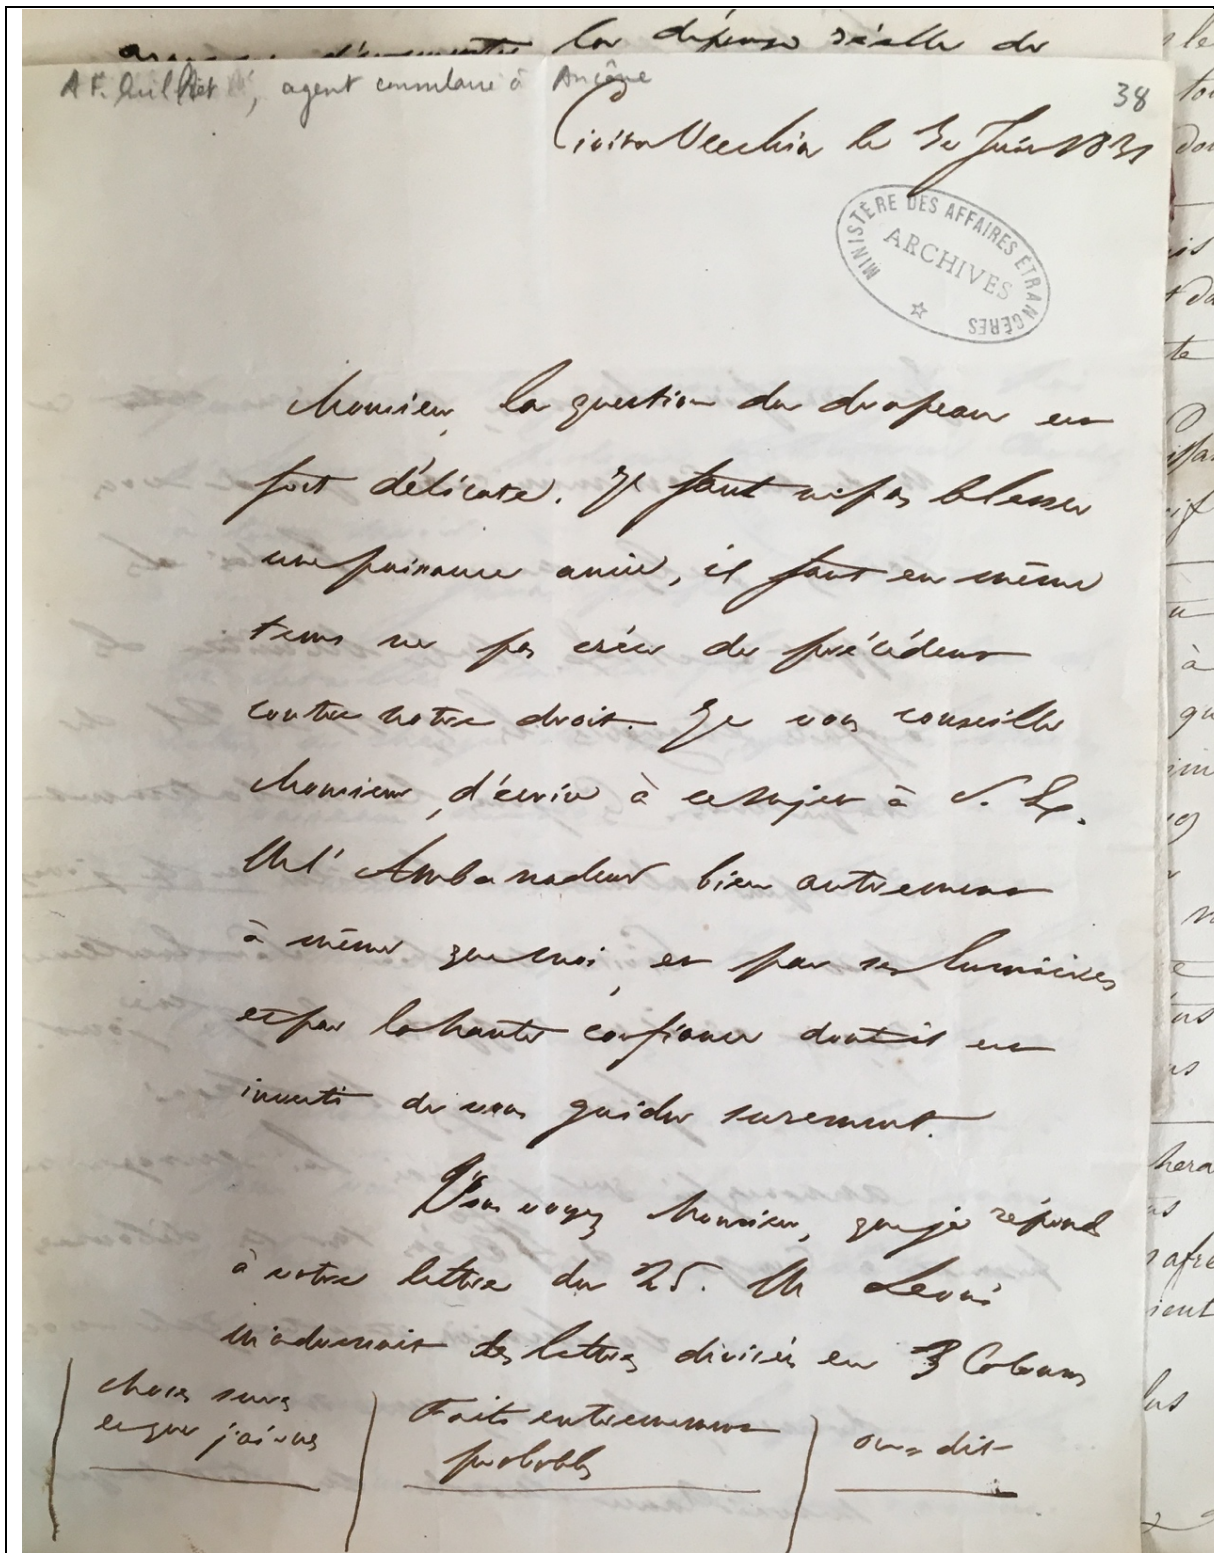 la dépense réelle de
A F. Quilliet, agent consulaire à Ancône
38
Civita Vecchia le 30 Juin 1831
MINISTÈRE DES AFFAIRES ÉTRANGÈRES
ARCHIVES
Monsieur, la question du drapeau est
fort délicate. Il faut ne pas blesser
une puissance amie, il faut en même
tems ne pas créer de précédent
contre notre droit. Je vous conseille
Monsieur, d'écrire à ce sujet à S. Ex.
M l'Ambassadeur bien autrement
à même que moi, et par ses lumières
et par la haute confiance dont il est
investi de vous guider surement.
Vous voyez Monsieur, que je répond
à votre lettre du 25. M
m'adressait des lettres divisées en 3 Colonnes
choses sures
ce que j'ai vu
Faits extremement
probables
on a dit